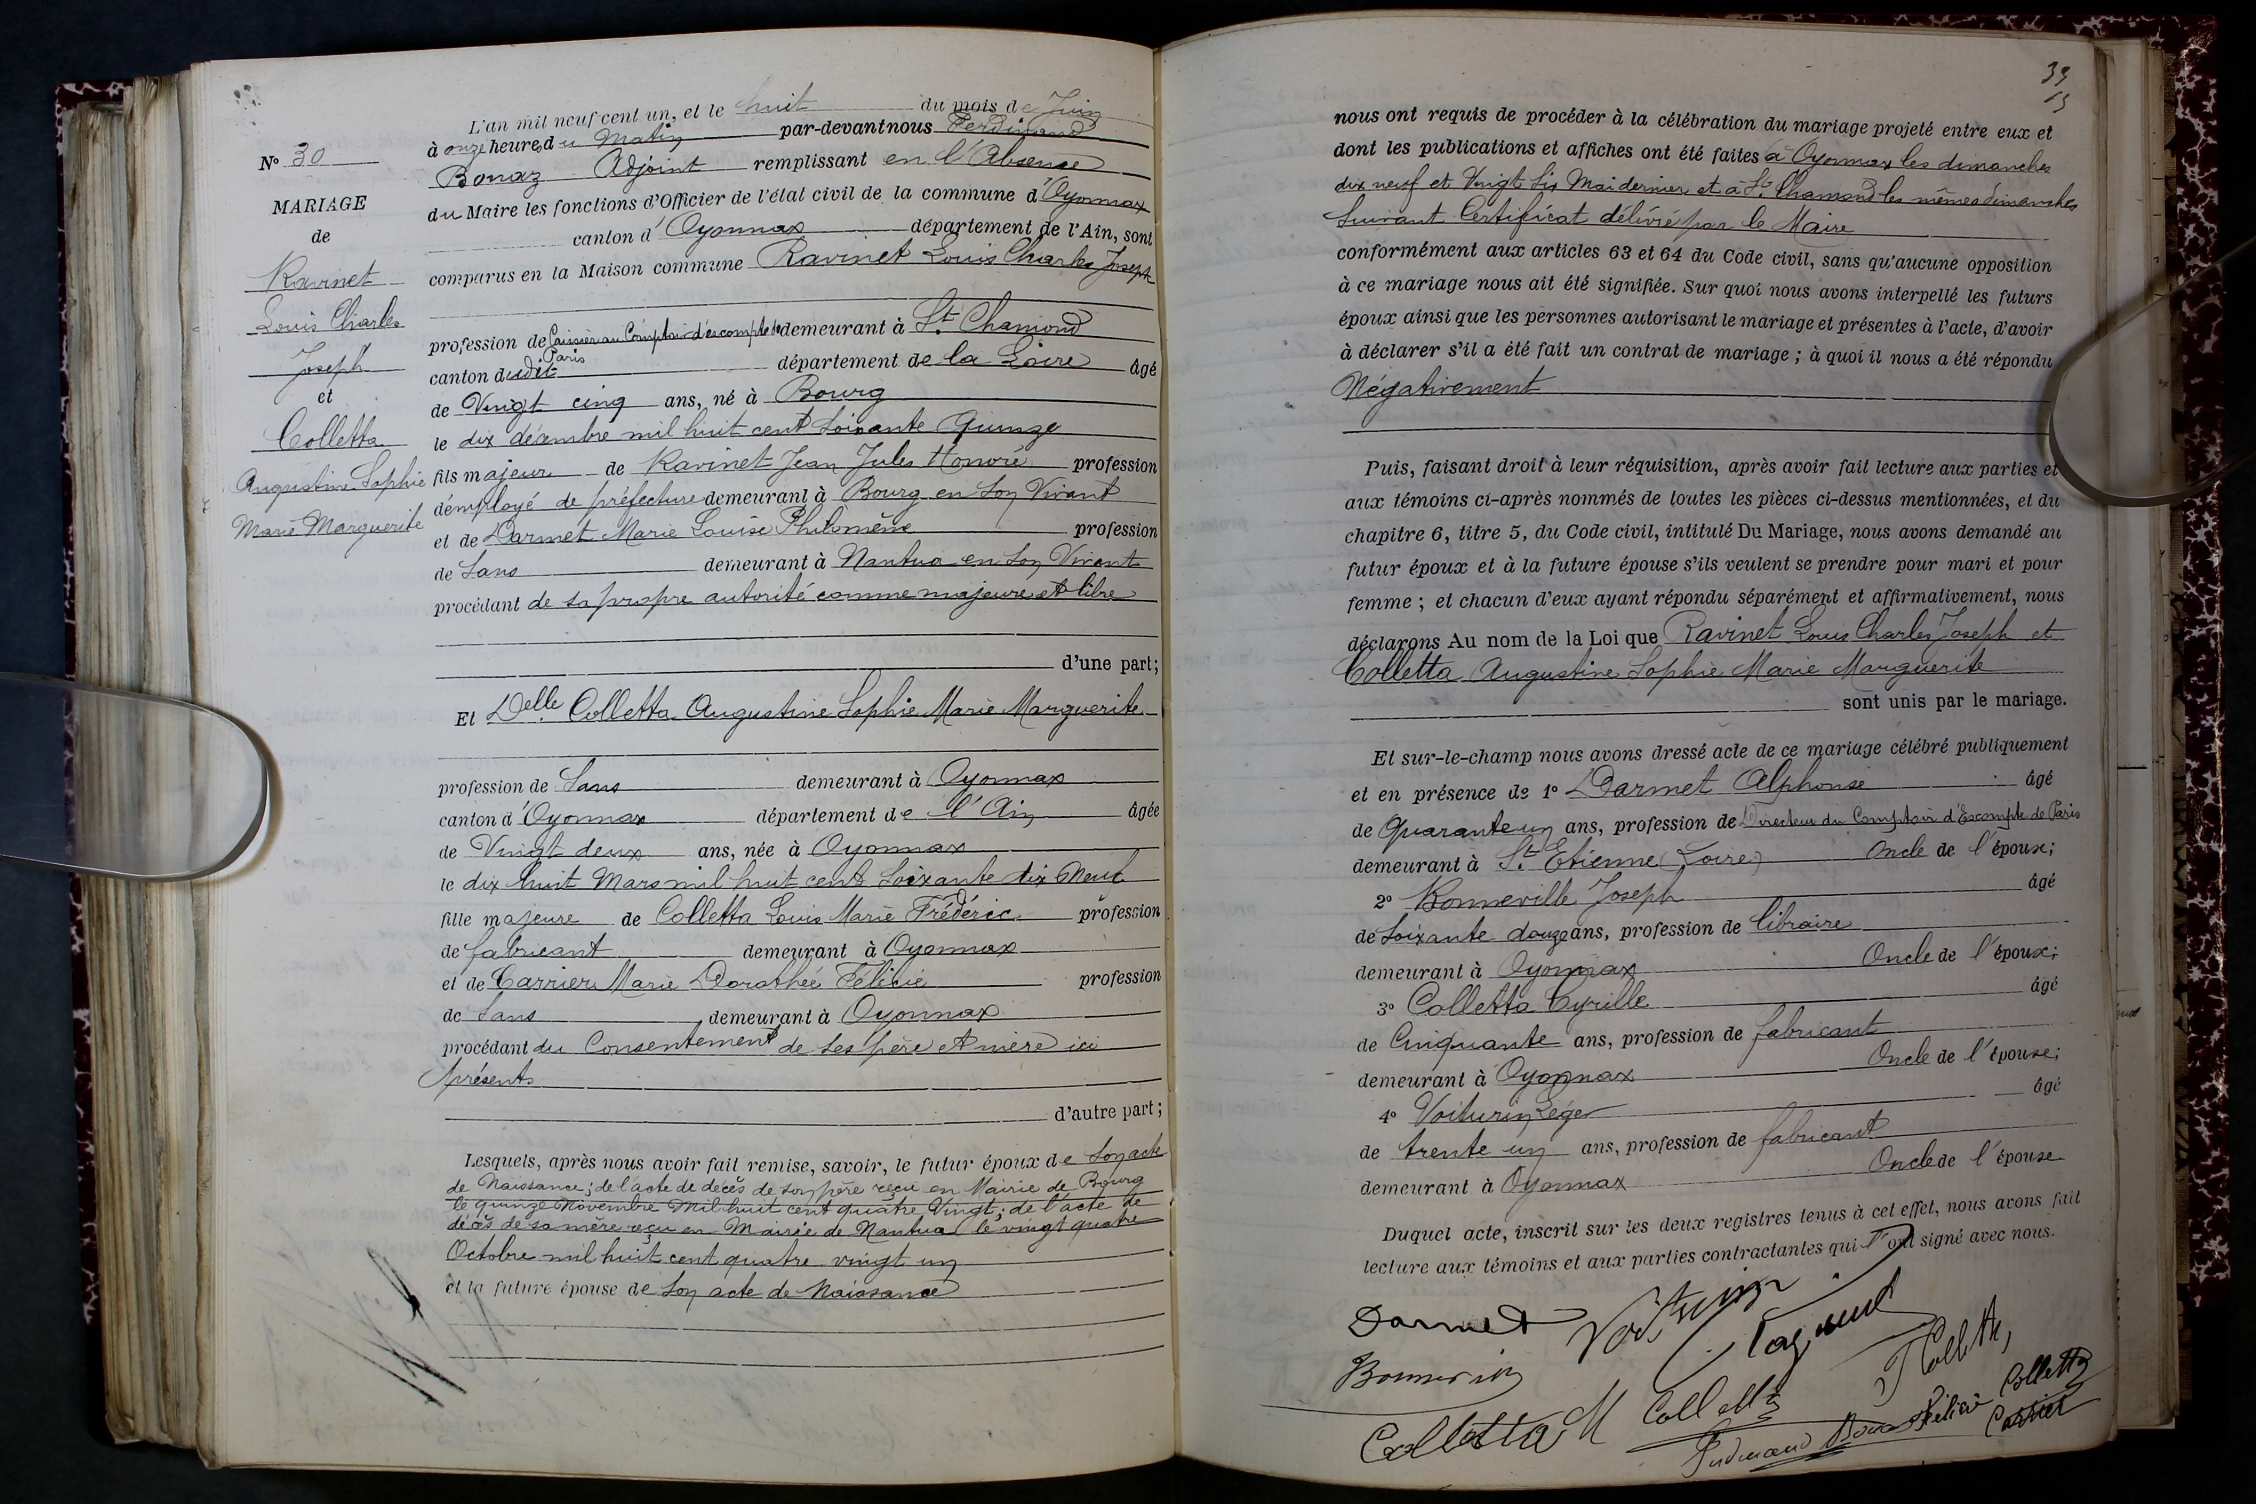 L'an mil neuf cent un, et le huit du mois de Juin
à onze heures du Matin par-devant nous Ferdinand
Bonaz Adjoint remplissant en l'Absence
du Maire les fonctions d'Officier de l'état civil de la commune d'Oyonnax
canton d'Oyonnax département de l'Ain, sont
comparus en la Maison commune Ravinet Louis Charles Joseph
profession de Caissier au Comptoir d'escompte de demeurant à St Chamond
Paris
canton dudit département de la Loire âgé
de Vingt cinq ans, né à Bourg
le dix décembre mil huit cent soixante Quinze
fils majeur de Ravinet Jean Jules Honoré profession
d'employé de préfecture demeurant à Bourg en son Vivant
et de Darmet Marie Louise Philomène profession
de Sans demeurant à Nantua en son Vivant
procédant de sa propre autorité comme majeure et libre
d'une part;
Et Delle Colletta Augustine Sophie Marie Marguerite
profession de Sans demeurant à Oyonnax
canton d'Oyonnax département de l'Ain âgée
de Vingt deux ans, née à Oyonnax
le dix huit Mars mil huit cent soixante dix Neuf
fille majeure de Colletta Louis Marie Frédéric profession
de fabricant demeurant à Oyonnax
et de Carrier Marie Dorothée Félicie profession
de Sans demeurant à Oyonnax
procédant du Consentement de ses père et mère ici
présents
d'autre part;
Lesquels, après nous avoir fait remise, savoir, le futur époux de son acte
de Naissance; de l'acte de décès de son père reçu en Mairie de Bourg
le quinze Novembre Mil huit cent quatre Vingt; de l'acte de
décès de sa mère reçu en Mairie de Nantua le vingt quatre
Octobre mil huit cent quatre vingt un
et la future épouse de son acte de Naissance
N° 30
MARIAGE
de
Ravinet
Louis Charles
Joseph
et
Colletta
Augustine Sophie
Marie Marguerite
39
nous ont requis de procéder à la célébration du mariage projeté entre eux et
dont les publications et affiches ont été faites à Oyonnax les dimanches
dix neuf et Vingt Six Mai dernier et à St Chamond les mêmes dimanches
suivant Certificat délivré par le Maire
conformément aux articles 63 et 64 du Code civil, sans qu'aucune opposition
à ce mariage nous ait été signifiée. Sur quoi nous avons interpellé les futurs
époux ainsi que les personnes autorisant le mariage et présentes à l'acte, d'avoir
à déclarer s'il a été fait un contrat de mariage; à quoi il nous a été répondu
Négativement
Puis, faisant droit à leur réquisition, après avoir fait lecture aux parties et
aux témoins ci-après nommés de toutes les pièces ci-dessus mentionnées, et du
chapitre 6, titre 5, du Code civil, intitulé Du Mariage, nous avons demandé au
futur époux et à la future épouse s'ils veulent se prendre pour mari et pour
femme; et chacun d'eux ayant répondu séparément et affirmativement, nous
déclarons Au nom de la Loi que Ravinet Louis Charles Joseph et
Colletta Augustine Sophie Marie Marguerite
sont unis par le mariage.
Et sur-le-champ nous avons dressé acte de ce mariage célébré publiquement
et en présence de 1° Darmet Alphonse âgé
de Quarante un ans, profession de Directeur du Comptoir d'Escompte de Paris
demeurant à St Etienne (Loire) Oncle de l'époux;
2° Bonneville Joseph âgé
de soixante douze ans, profession de libraire
demeurant à Oyonnax Oncle de l'époux;
3° Colletta Cyrille âgé
de Cinquante ans, profession de fabricant
demeurant à Oyonnax Oncle de l'épouse;
4° Voiturin Léger âgé
de trente un ans, profession de fabricant
demeurant à Oyonnax Oncle de l'épouse
Duquel acte, inscrit sur les deux registres tenus à cet effet, nous avons fait
lecture aux témoins et aux parties contractantes qui ont signé avec nous.
Darmet Voiturin
Colletta
Colletta M Colletta Félicie Carrier